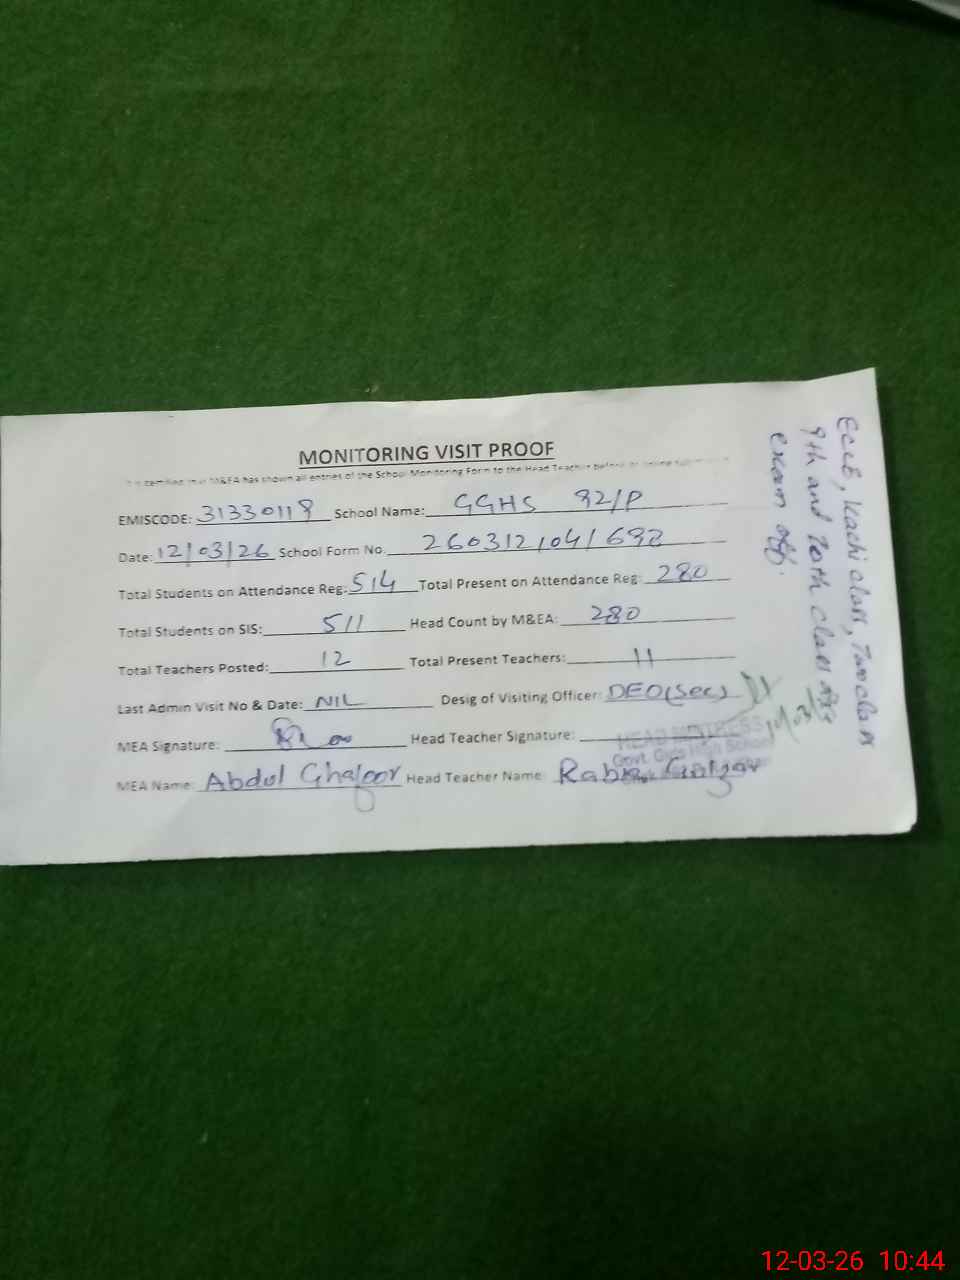 MONITORING VISIT PROOF
It is certified that M&EA has shown all entries of the School Monitoring Form to the Head Teacher before online
EMISCODE: 31330119 School Name: GGHS 82/P
Date: 12/03/26 School Form No. 260312/04/698
Total Students on Attendance Reg: 514 Total Present on Attendance Reg: 280
Total Students on SIS: 511 Head Count by M&EA: 280
Total Teachers Posted: 12 Total Present Teachers: 11
Last Admin Visit No & Date: NIL Desig of Visiting Officer: DEO(Sec)
MEA Signature: Head Teacher Signature:
HEAD MISTRESS
Govt. Girls High School
MEA Name: Abdul Ghafoor Head Teacher Name: Rabia Gulzar
ECCE, Kachi class, Two class
9th and 10th class
exam off.
12-03-26 10:44